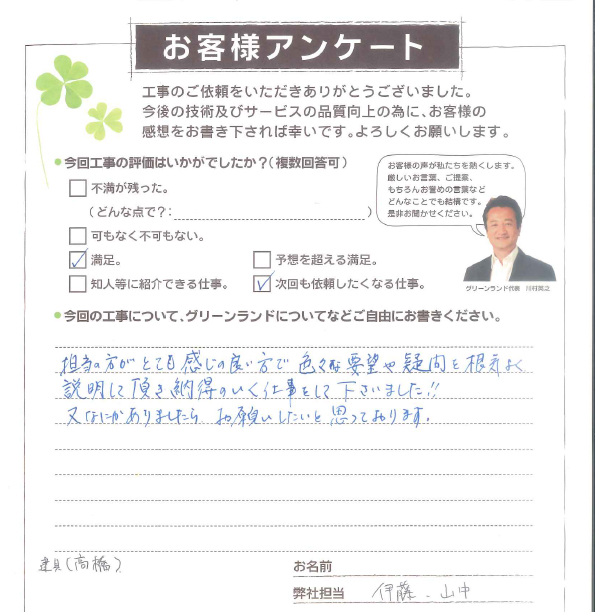 お客様アンケート
工事のご依頼をいただきありがとうございました。
今後の技術及びサービスの品質向上の為に、お客様の
感想をお書き下されば幸いです。よろしくお願いします。
●今回工事の評価はいかがでしたか?(複数回答可)
不満が残った。
(どんな点で?: )
可もなく不可もない。
満足。
予想を超える満足。
知人等に紹介できる仕事。
次回も依頼したくなる仕事。
お客様の声が私たちを熱くします。
厳しいお言葉、ご提案、
もちろんお誉めの言葉など
どんなことでも結構です。
是非お聞かせください。
グリーンランド代表 川村真之
●今回の工事について、グリーンランドについてなどご自由にお書きください。
担当の方がとても感じの良い方で色々な要望や疑問を根気よく
説明して頂き納得のいく仕事をして下さいました!!
又なにかありましたら、お願いしたいと思っております。
建具(高橋)
お名前
弊社担当 伊藤、山中